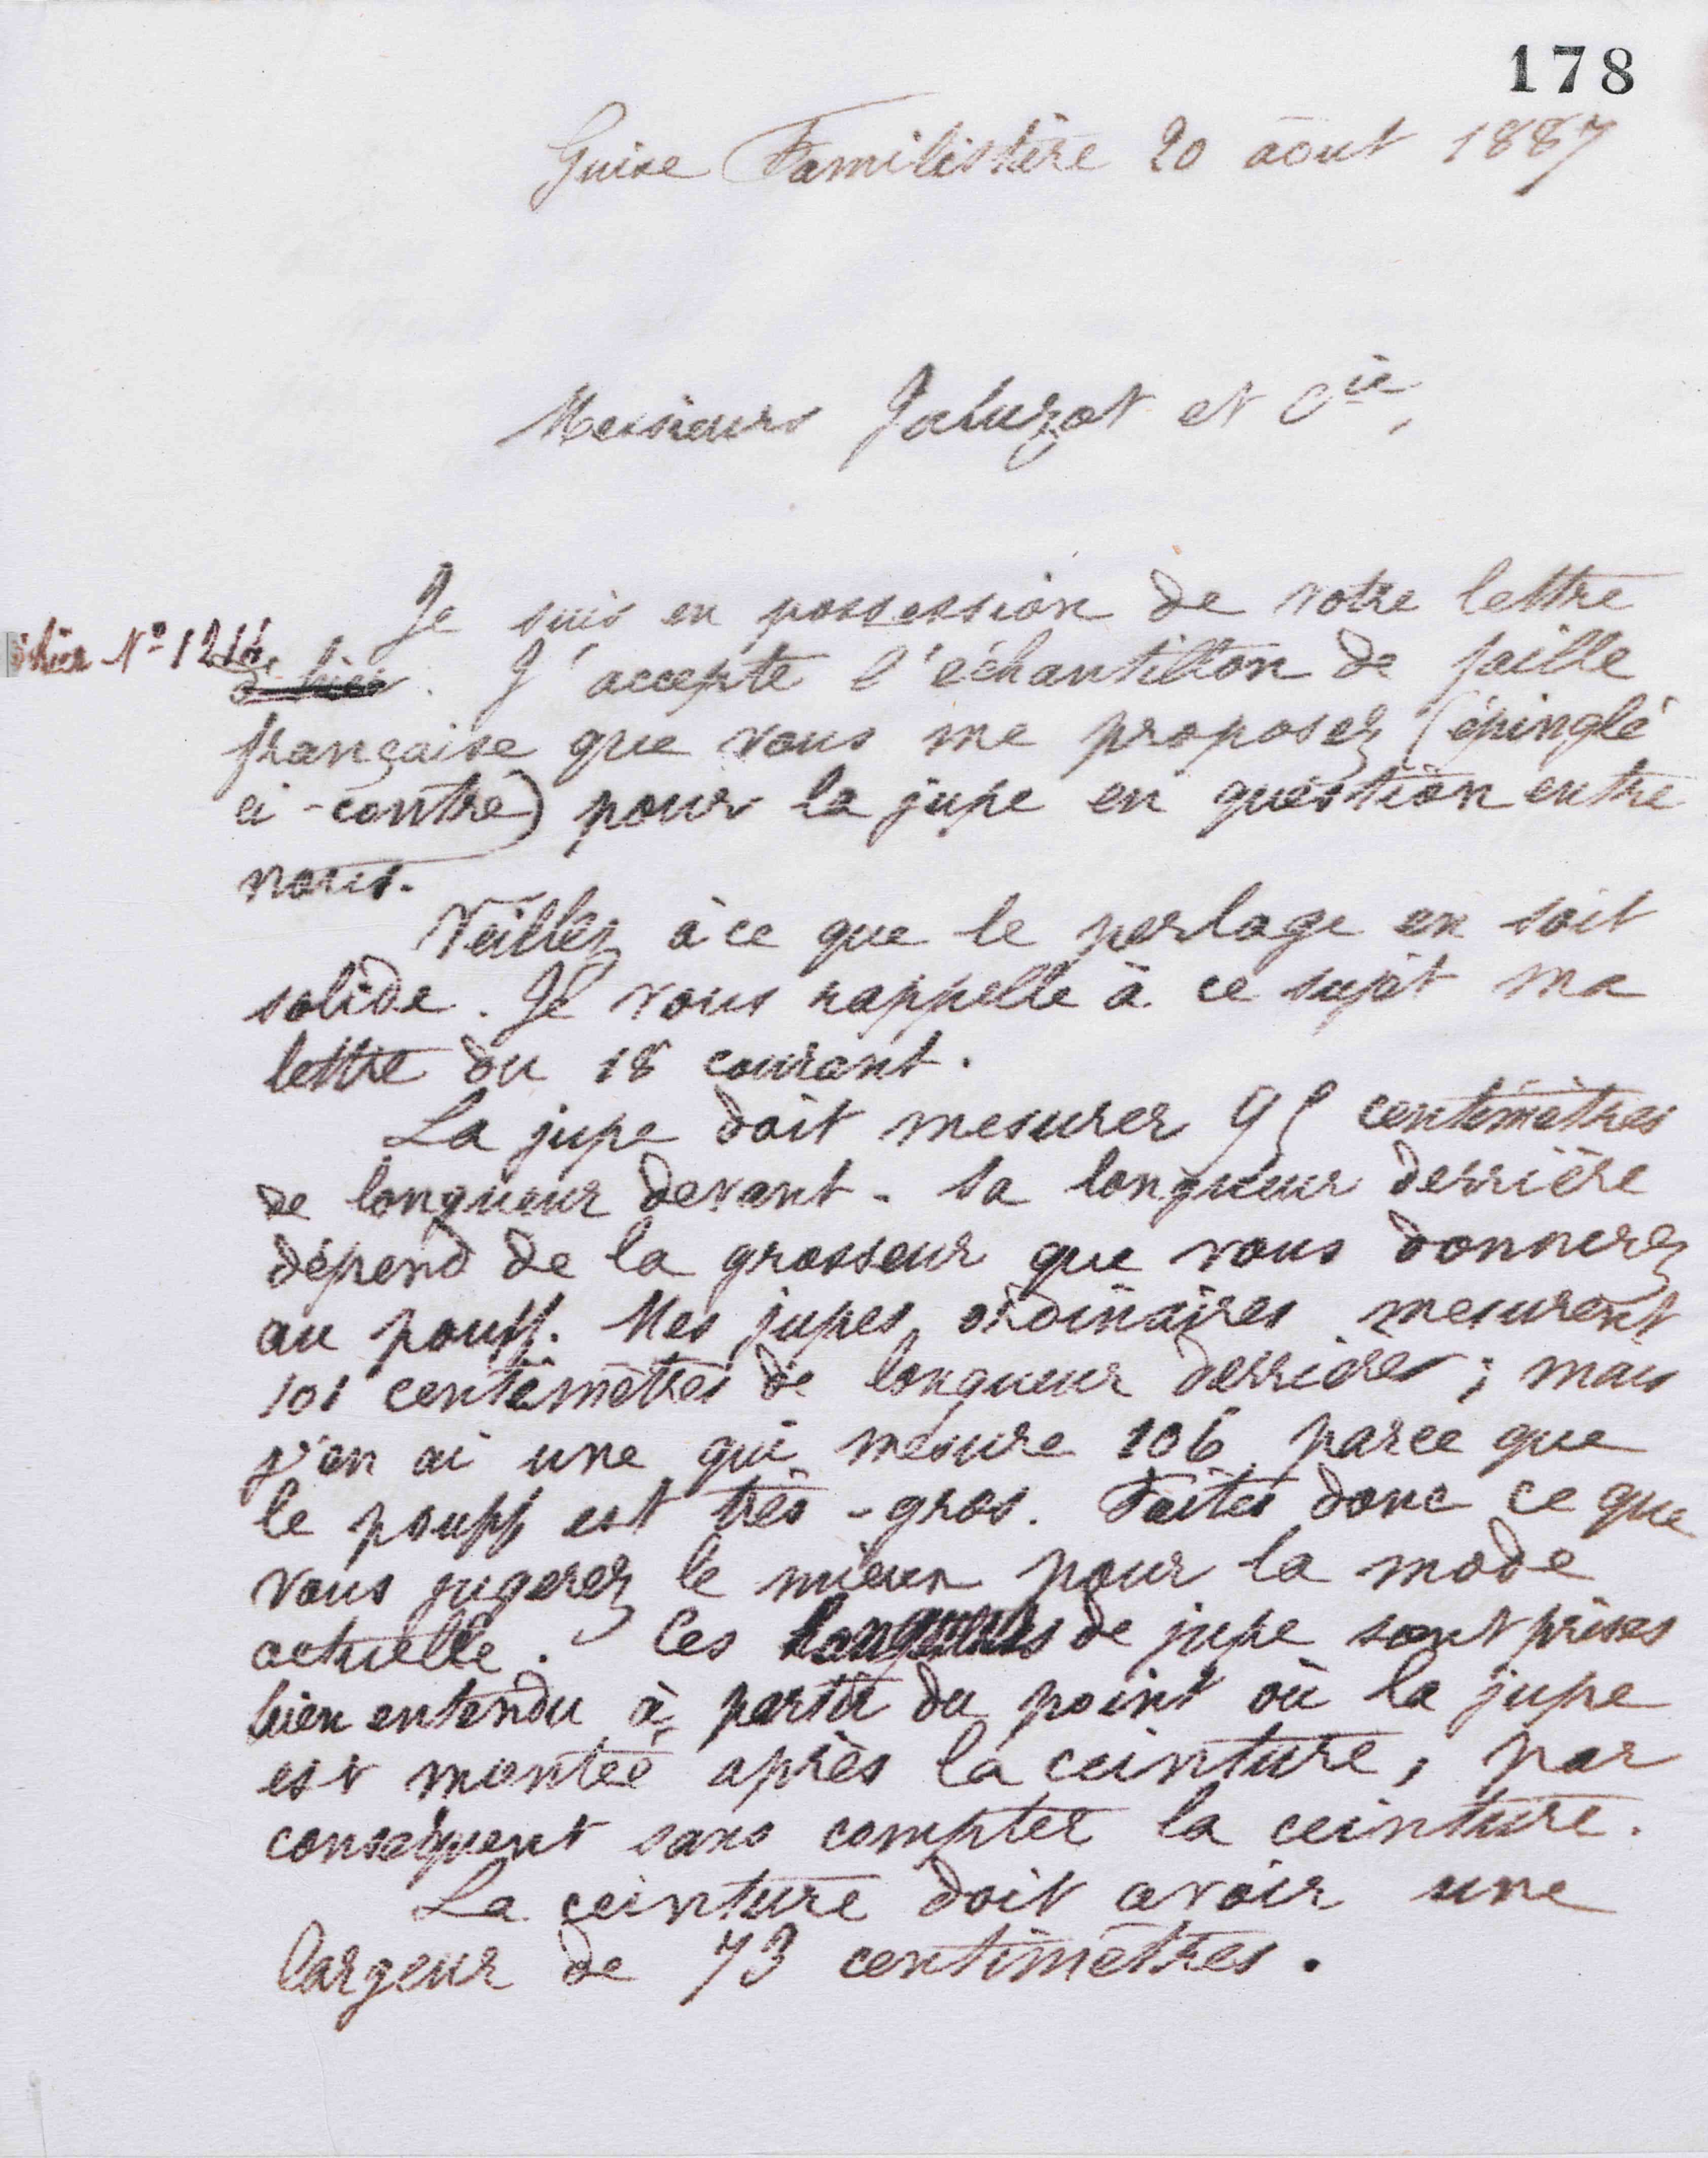 178
Guise Familistère 20 août 1887
Messieurs Jaluzot et Cie,
Je suis en possession de votre lettre
d'hier Nº 1214
. J'accepte l'échantillon de faille
française que vous me proposez (épinglé
ci-contre) pour la jupe en question entre
nous.
Veillez à ce que le perlage en soit
solide. Je vous rappelle à ce sujet ma
lettre du 18 courant.
La jupe doit mesurer 95 centimètres
de longueur devant. Sa longueur derrière
dépend de la grosseur que vous donnerez
au pouff. Mes jupes ordinaires mesurent
101 centimètres de longueur derrière ; mais
j'en ai une qui mesure 106 parce que
le pouff est très-gros. Faites donc ce que
vous jugerez le mieux pour la mode
actuelle. Ces longueurs de jupe sont prises
bien entendu à partir du point où la jupe
est montée après la ceinture, par
conséquent sans compter la ceinture.
La ceinture doit avoir une
largeur de 73 centimètres.